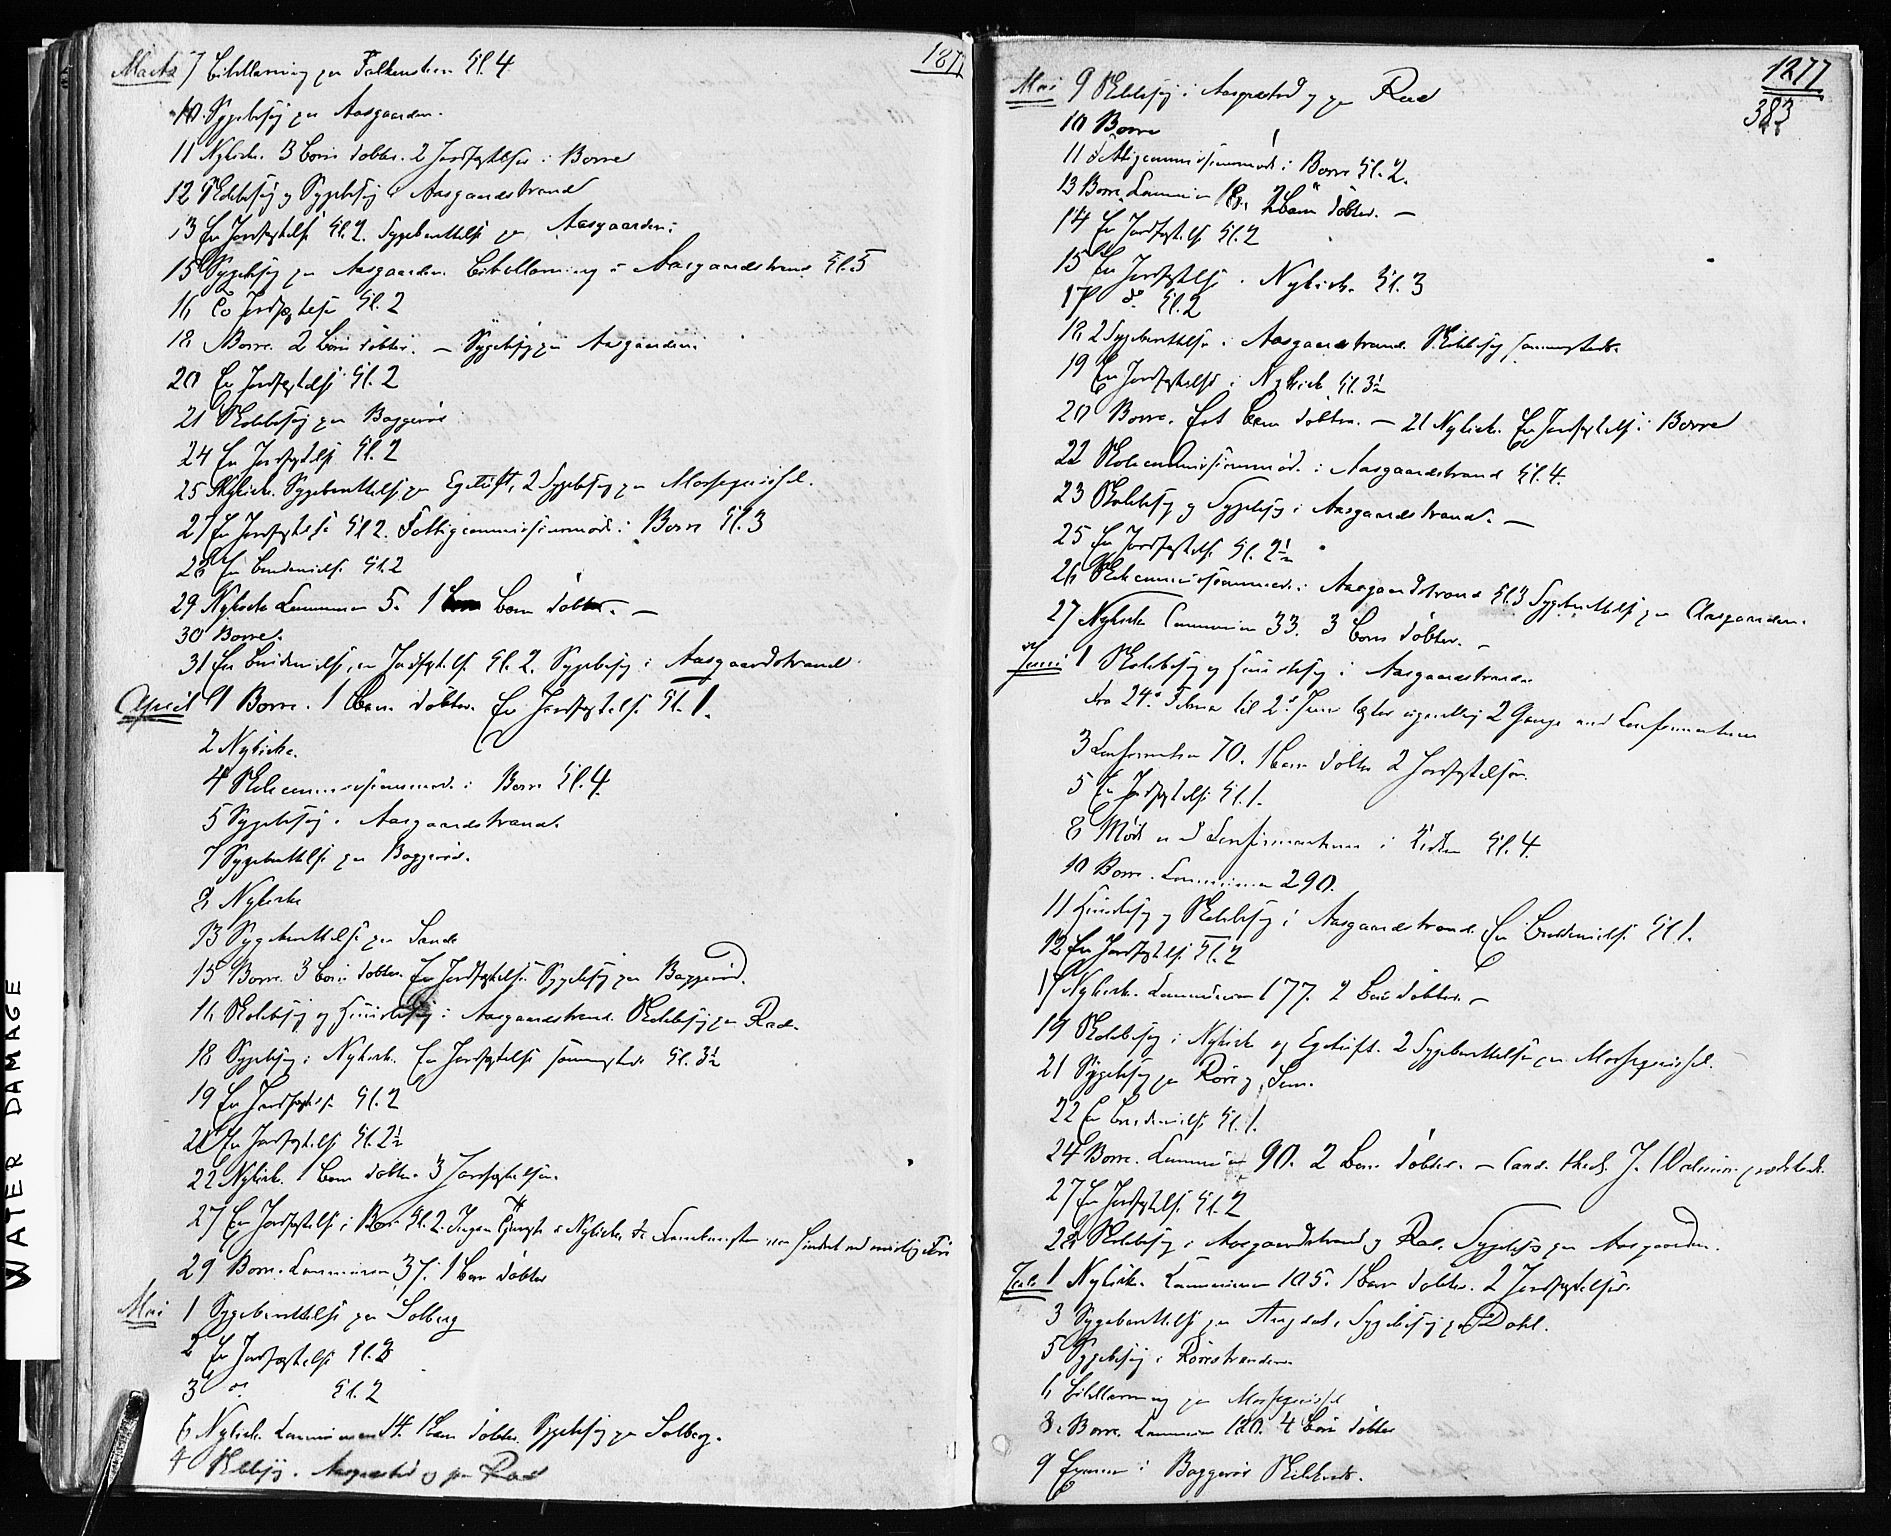 187
Marts 7 Bibellæsning paa Falkensteen Kl. 4
10 Sygebesøg paa Aasgaarden.
11 Nykirke. 3 Børn døbte. 2 Jordfæstelser i Borre
12 Skolebesøg og Sygebesøg i Aasgaardstrand
13 En Jordfæstelse Kl. 2. Sygeberettelse paa Aasgaarden.
15 Sygebesøg paa Aasgaarden. Bibellæsning i Aasgaardstrand Kl. 5
16 En Jordfæstelse Kl. 2
18 Borre. 2 Børn døbte. — Sygebesøg paa Aasgaarden.
20 En Jordfæstelse Kl. 2
21 Skolebesøg paa Baggerød
24 En Jordfæstelse Kl. 2
25 Nykirke. Sygeberettelse paa Egetüft, 2 Sygebesøg paa
27 En Jordfæstelse Kl 2. Fattigcommissionsmøde i Borre Kl. 3
28 En Brudevielse Kl. 2
29 Nykirke Communion 5. 1 Barn døbt. —
30 Borre.
31 En Brudevielse, en Jordfæstelse Kl. 2. Sygebesøg i Aasgaardstrand.
April 1 Borre. 1 Barn døbt. En Jordfæstelse Kl. 1.
2 Nykirke.
4 Skolecommissionsmøde i Borre Kl. 4.
5 Sygebesøg i Aasgaardstrand.
7 Sygeberettelse paa Baggerød.
8 Nykirke
13 Sygeberettelse paa Sande
15 Borre. 3 Børn døbte. En Jordfæstelse. Sygebesøg paa Baggerød.
16 Skolebesøg og Huusbesøg i Aasgaardstrand. Skolebesøg paa Rae.
18 Sygebesøg i Nykirke. En Jordfæstelse sammesteds Kl. 3½
19 En Jordfæstelse Kl. 2
21 En Jordfæstelse Kl. 2½
22 Nykirke. 1 Barn døbt. 3 Jordfæstelser.
27 En Jordfæstelse i Borre Kl. 2. Ingen Tjeneste i Nykirke, da
29 Borre. Communion 37. 1 Barn døbt
Mai 1 Sygeberettelse paa Solberg
2 En Jordfæstelse Kl. 2
3 do Kl. 2
6 Nykirke. Communion 14. 1 Barn døbt. Sygebesøg paa Solberg.
Skolebesøg i og paa Rae
1877
383
Mai 9 Skolebesøg i og paa Rae
10 Borre
11 Fattigcommissionsmøde i Borre Kl. 2.
13 Borre. Communion 2 Børn døbte. —
14 En Jordfæstelse Kl. 2
15 En Jordfæstelse i Nykirke Kl. 3
17 do. Kl. 2
18 2 Sygeberettelser i Aasgaardstrand. Skolebesøg sammesteds.
19 En Jordfæstelse i Nykirke Kl. 3½
20 Borre. Eet Barn døbt. — 21 Nykirke. En Jordfæstelse i Borre
22 Skolecommissionsmøde i Aasgaardstrand Kl. 4.
23 Skolebesøg og Sygebesøg i Aasgaardstrand. —
25 En Jordfæstelse Kl. 2½
26 Skolecommissionsmøde i Aasgaardstrand Kl. 3 Sygeberettelse paa Aasgaarden.
27 Nykirke Communion 33. 3 Børn døbte. —
Juni 1 Skolebesøg og Huusbesøg i Aasgaardstrand.
Fra 24de Februar til 2den Juni læstes ugentlig 2 Gange med Confirmanterne
3 Confirmation 70. 1 Barn døbt 2 Jordfæstelser.
5 En Jordfæstelse Kl. 1.
8 Møde med Confirmanterne i Kirken Kl. 4.
10 Borre. Communion 290.
11 Huusbesøg og Skolebesøg i Aasgaardstrand. En Brudevielse Kl 1.
12 En Jordfæstelse Kl. 2
17 Nykirke. Communion 177. 2 Børn døbte. —
19 Skolebesøg i Nykirke og Egetüft. 2 Sygeberettelser paa
21 Sygebesøg paa Røre og Sem.
22 En Brudevielse Kl. 1.
24 Borre. Communion 90. 2 Børn døbte. — Cand. theol. J. prædikede.
27 En Jordfæstelse Kl. 2
28 Skolebesøg i Aasgaardstrand og Rae. Sygebesøg paa Aasgaarden.
Juli 1 Nykirke. Communion 105. 1 Barn døbt. 2 Jordfæstelser.
3 Sygeberettelse paa Sygebesøg paa Dahl.
5 Sygebesøg i Rørestranden
6 Bibellæsning paa
8. Borre. Communion 120. 4 Børn døbte
9 Examen i Baggerød Skolekreds.
WATER DAMAGE